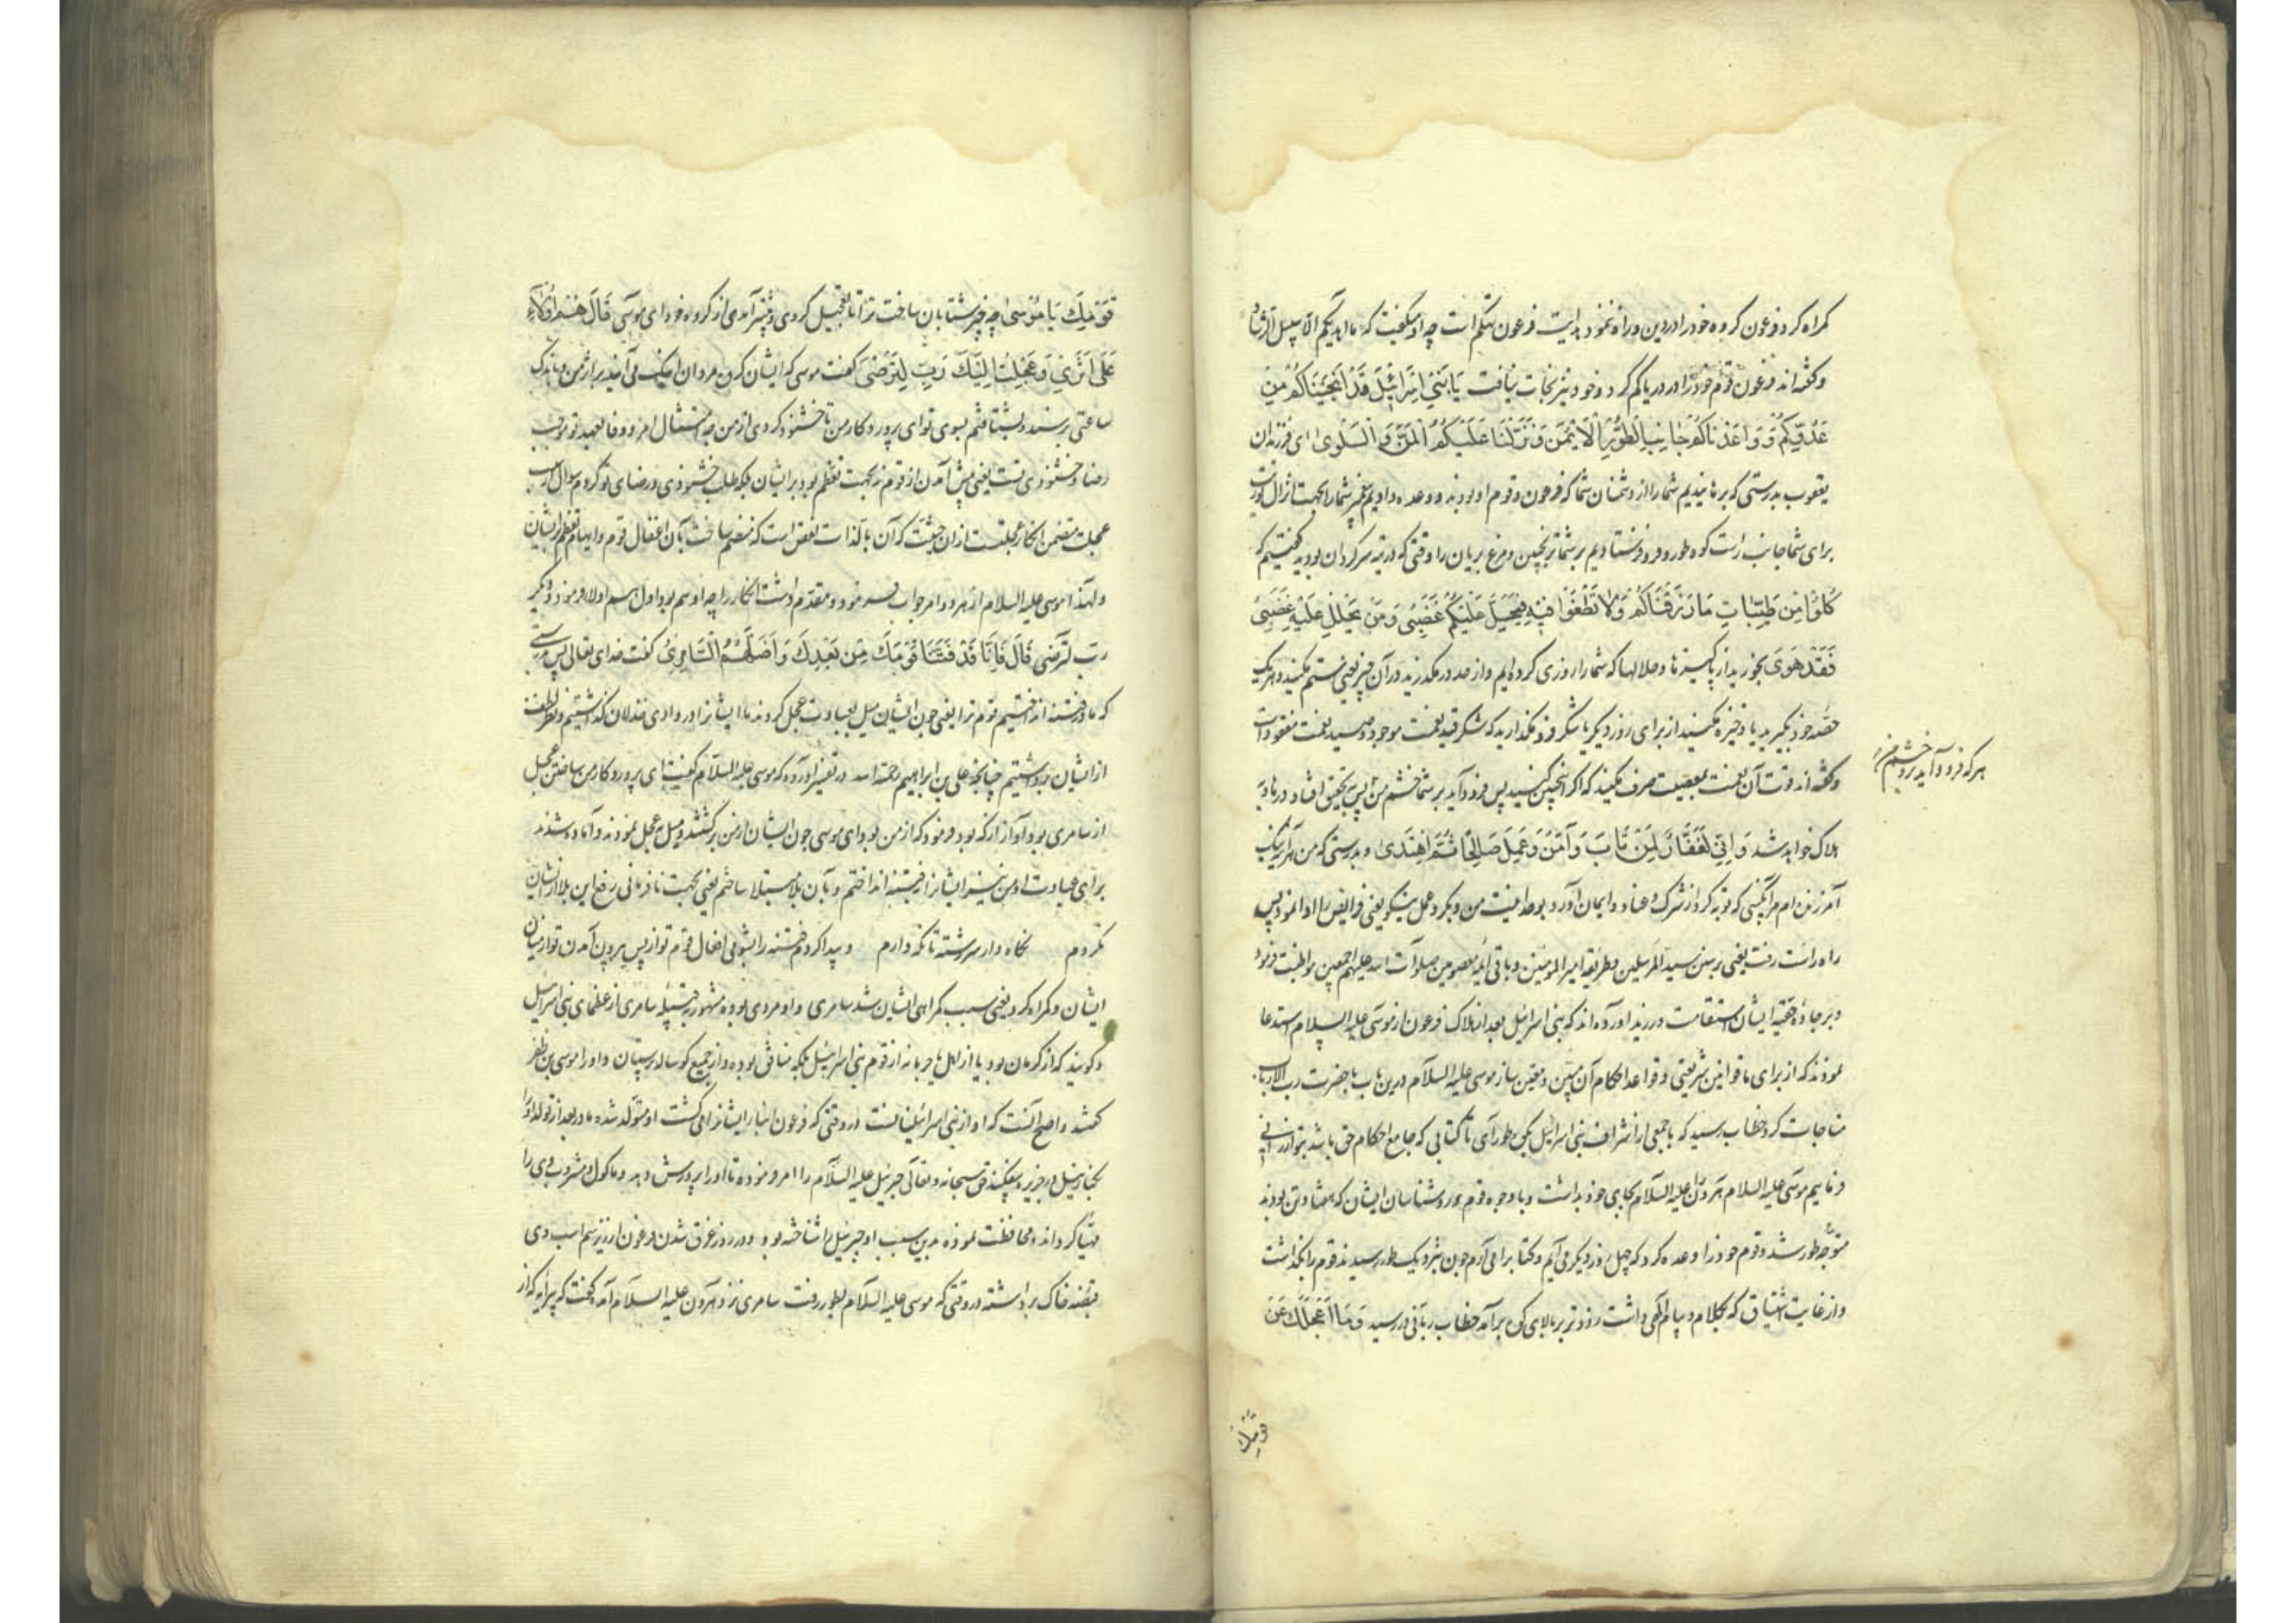 گمراه کرد فرعون کروه خود را در دین و راه ننمود بدایت فرعون تهکم است چه او میگفت که ما اهدیکم الا سبیل الرشاد
و گفته‌اند فرعون قوم خود را در دریا گم کرد و خود نیز نجات نیافت یَا بَنِي اِسْرَائِیلَ قَدْ اَنْجَیْنَاکُمْ مِنْ
عَدُوِّکُمْ وَ وَاعَدْنَاکُمْ جَانِبَ الطُّورِ الْاَیْمَنَ وَ نَزَّلْنَا عَلَیْکُمُ الْمَنَّ وَ السَّلْوی ای فرزندان
یعقوب بدرستی که برهانیدیم شما را از دشمنان شما که فرعون و قوم او بودند و وعده دادیم پیغمبر شما را بجهت انزال توریت
برای شما جانب راست کوه طور و فرو فرستادیم بر شما ترنجبین و مرغ بریان را وقتی که در تیه سرکردان بودید گفتیم که
کُلُوْا مِنْ طَیِّبَاتِ مَا رَزَقْنَاکُمْ وَ لَا تَطْغَوْا فِیْهِ فَیَحِلَّ عَلَیْکُمْ غَضَبِیْ وَ مَنْ یَحْلِلْ عَلَیْهِ غَضَبِیْ
فَقَدْ هَوَی بخورید از پاکیزها و حلالها که شما را روزی کرده‌ایم و از حد در مکذرید در آن چیز یعنی ستم مکنید و هر یک
حصه خود بگیرید یا ذخیره مکنید از برای روز دیکر یا شکر فرو مکذارید که شکر قید نعمت موجود و صید نعمت مفقود است
و گفته‌اند قوت آن نعمت بمعصیت صرف مکنید که اکر انچنین کنید پس فرود آید بر شما خشم من پس بتحقیق افتاد در هاویه
هرکه فرود آید برو خشم من
هلاک خواهد شد وَ اِنِّي لَغَفَّارٌ لِمَنْ تَابَ وَ آمَنَ وَ عَمِلَ صَالِحًا ثُمَّ اهْتَدَی و بدرستی که من هراینه نیک
آمرزنده‌ام مر آنکسی که توبه کرد از شرک و عناد و ایمان آورد بوحدانیت من و بکرد عمل نیکو یعنی فرایض را ادا نمود پس
راه راست رفت یعنی بر سنن سید المرسلین و طریقه امیر المومنین و باقی ائمه معصومین صلوات الله علیهم اجمعین مواظبت نمود
و بر جاده حقیه ایشان استقامت ورزید اورده‌اند که بنی اسرائیل بعد از هلاک فرعون از موسی علیه السلام استدعا
نمودند که از برای ما قوانین شریعتی و قواعد احکام آن مبین و معین ساز موسی علیه السلام درین باب با حضرت رب الارباب
مناجات کرد خطاب رسید که با جمعی از اشراف بنی اسرائیل بکوه طور آی تا کتابی که جامع احکام حق باشد بتو ارزانی
فرماییم موسی علیه السلام هرون علیه السلام بجای خود بداشت و با وجوه قوم و روشناسان ایشان که هفتاد تن بودند
متوجه طور شد و قوم خود را وعده کرد که چهل روز دیکر می‌آیم و کتاب را می‌آرم چون بنزدیک طور رسیدند قوم را بکذاشت
و از غایت اشتیاق که بکلام و پیام الهی داشت زودتر بر بالای کوه برآمد خطاب ربانی در رسید وَ مَا اَعْجَلَكَ عَنْ
قومك
قَوْمِكَ یَا مُوْسیٰ چه چیز شتابان ساخت ترا تا تعجیل کردی و پیشتر آمدی از کروه خود ای موسی قَالَ هُمْ اُولَاءِ
عَلَی اَثَرِيْ وَ عَجِلْتُ اِلَیْكَ رَبِّ لِتَرْضیٰ گفت موسی که ایشان کروه مردان اینک می‌آیند بر اثر من و باندک
ساعتی برسند و بشتافتم بسوی تو ای پروردکار من تا خشنود کردی از من چه امتثال امر و وفا بعهد تو موجب
رضا و خشنودی تست یعنی پیش آمدن از قوم نه بجهت تعظم بود بر ایشان بلکه طلب خشنودی و رضای تو کردم سوال از سبب
عجلت متضمن انکار عجلتست ازان حیثیت که آن بالذات نقص است که منضم ساخت بآن اغفال قوم و ایهام تعظم بر ایشان
و لهذا موسی علیه السلام از هر دو امر جواب فرمود و مقدم داشت انکار را چه او هم بود اول هم اولاء فرمود و دیگر
رب لترضی قَالَ فَاِنَّا قَدْ فَتَنَّا قَوْمَكَ مِنْ بَعْدِكَ وَ اَضَلَّهُمُ السَّامِرِیُّ گفت خدای تعالی پس بدرستی
که ما در فتنه انداختیم قوم ترا یعنی چون ایشان میل بعبادت عجل کردند ما ایشانرا در وادی خذلان کذاشتیم و نظر لطف
از ایشان برداشتیم چنانچه علی بن ابراهیم رحمه الله در تفسیر آورده که موسی علیه السلام گفت ای پروردکار من ساختن عجل
از سامری بود آواز از که بود فرمود که از من بود ای موسی چون ایشان از من برگشتند و میل بعجل نمودند و آماده شدند
برای عبادت او من نیز ایشانرا در فتنه انداختم و بآن بلا مبتلا ساختم یعنی بجهت نافرمانی رفع این بلا از ایشان
نکردم نگاه دار سررشته تا نگه دارم و پیدا کردم فتنه را بشومی افعال قوم تو از پس بیرون آمدن تو از میان
ایشان و گمراه کرد یعنی سبب گمراهی ایشان شد سامری و او مردی بوده مشهور بقبیله سامری از عظمای بنی اسرائیل
و گویند که از کرمان بود یا از اهل باجرما نه از قوم بنی اسرائیل بلکه منافق بوده و از جمیع کوساله پرستان و او را موسی بن ظفر
گفتند و اصح آنست که او از بنی اسرائیلیانست در وقتی که فرعون ابنا ایشانرا می‌کشت او متولد شده مادر بعد از تولد او را
بکنار نیل در جزیره بیفکند حق سبحانه و تعالی جبرئیل علیه السلام را امر فرموده تا او را پرورش دهد و ماکول و مشروب وی را
مهیا کرداند و محافظت نموده بدین سبب او جبرئیل را شناخته بود و در روز غرق شدن فرعون از زیر سم اسب وی
قبضه خاک برداشته در وقتی که موسی علیه السلام بطور رفت سامری نزد هرون علیه السلام آمد گفت که پیرایه که از